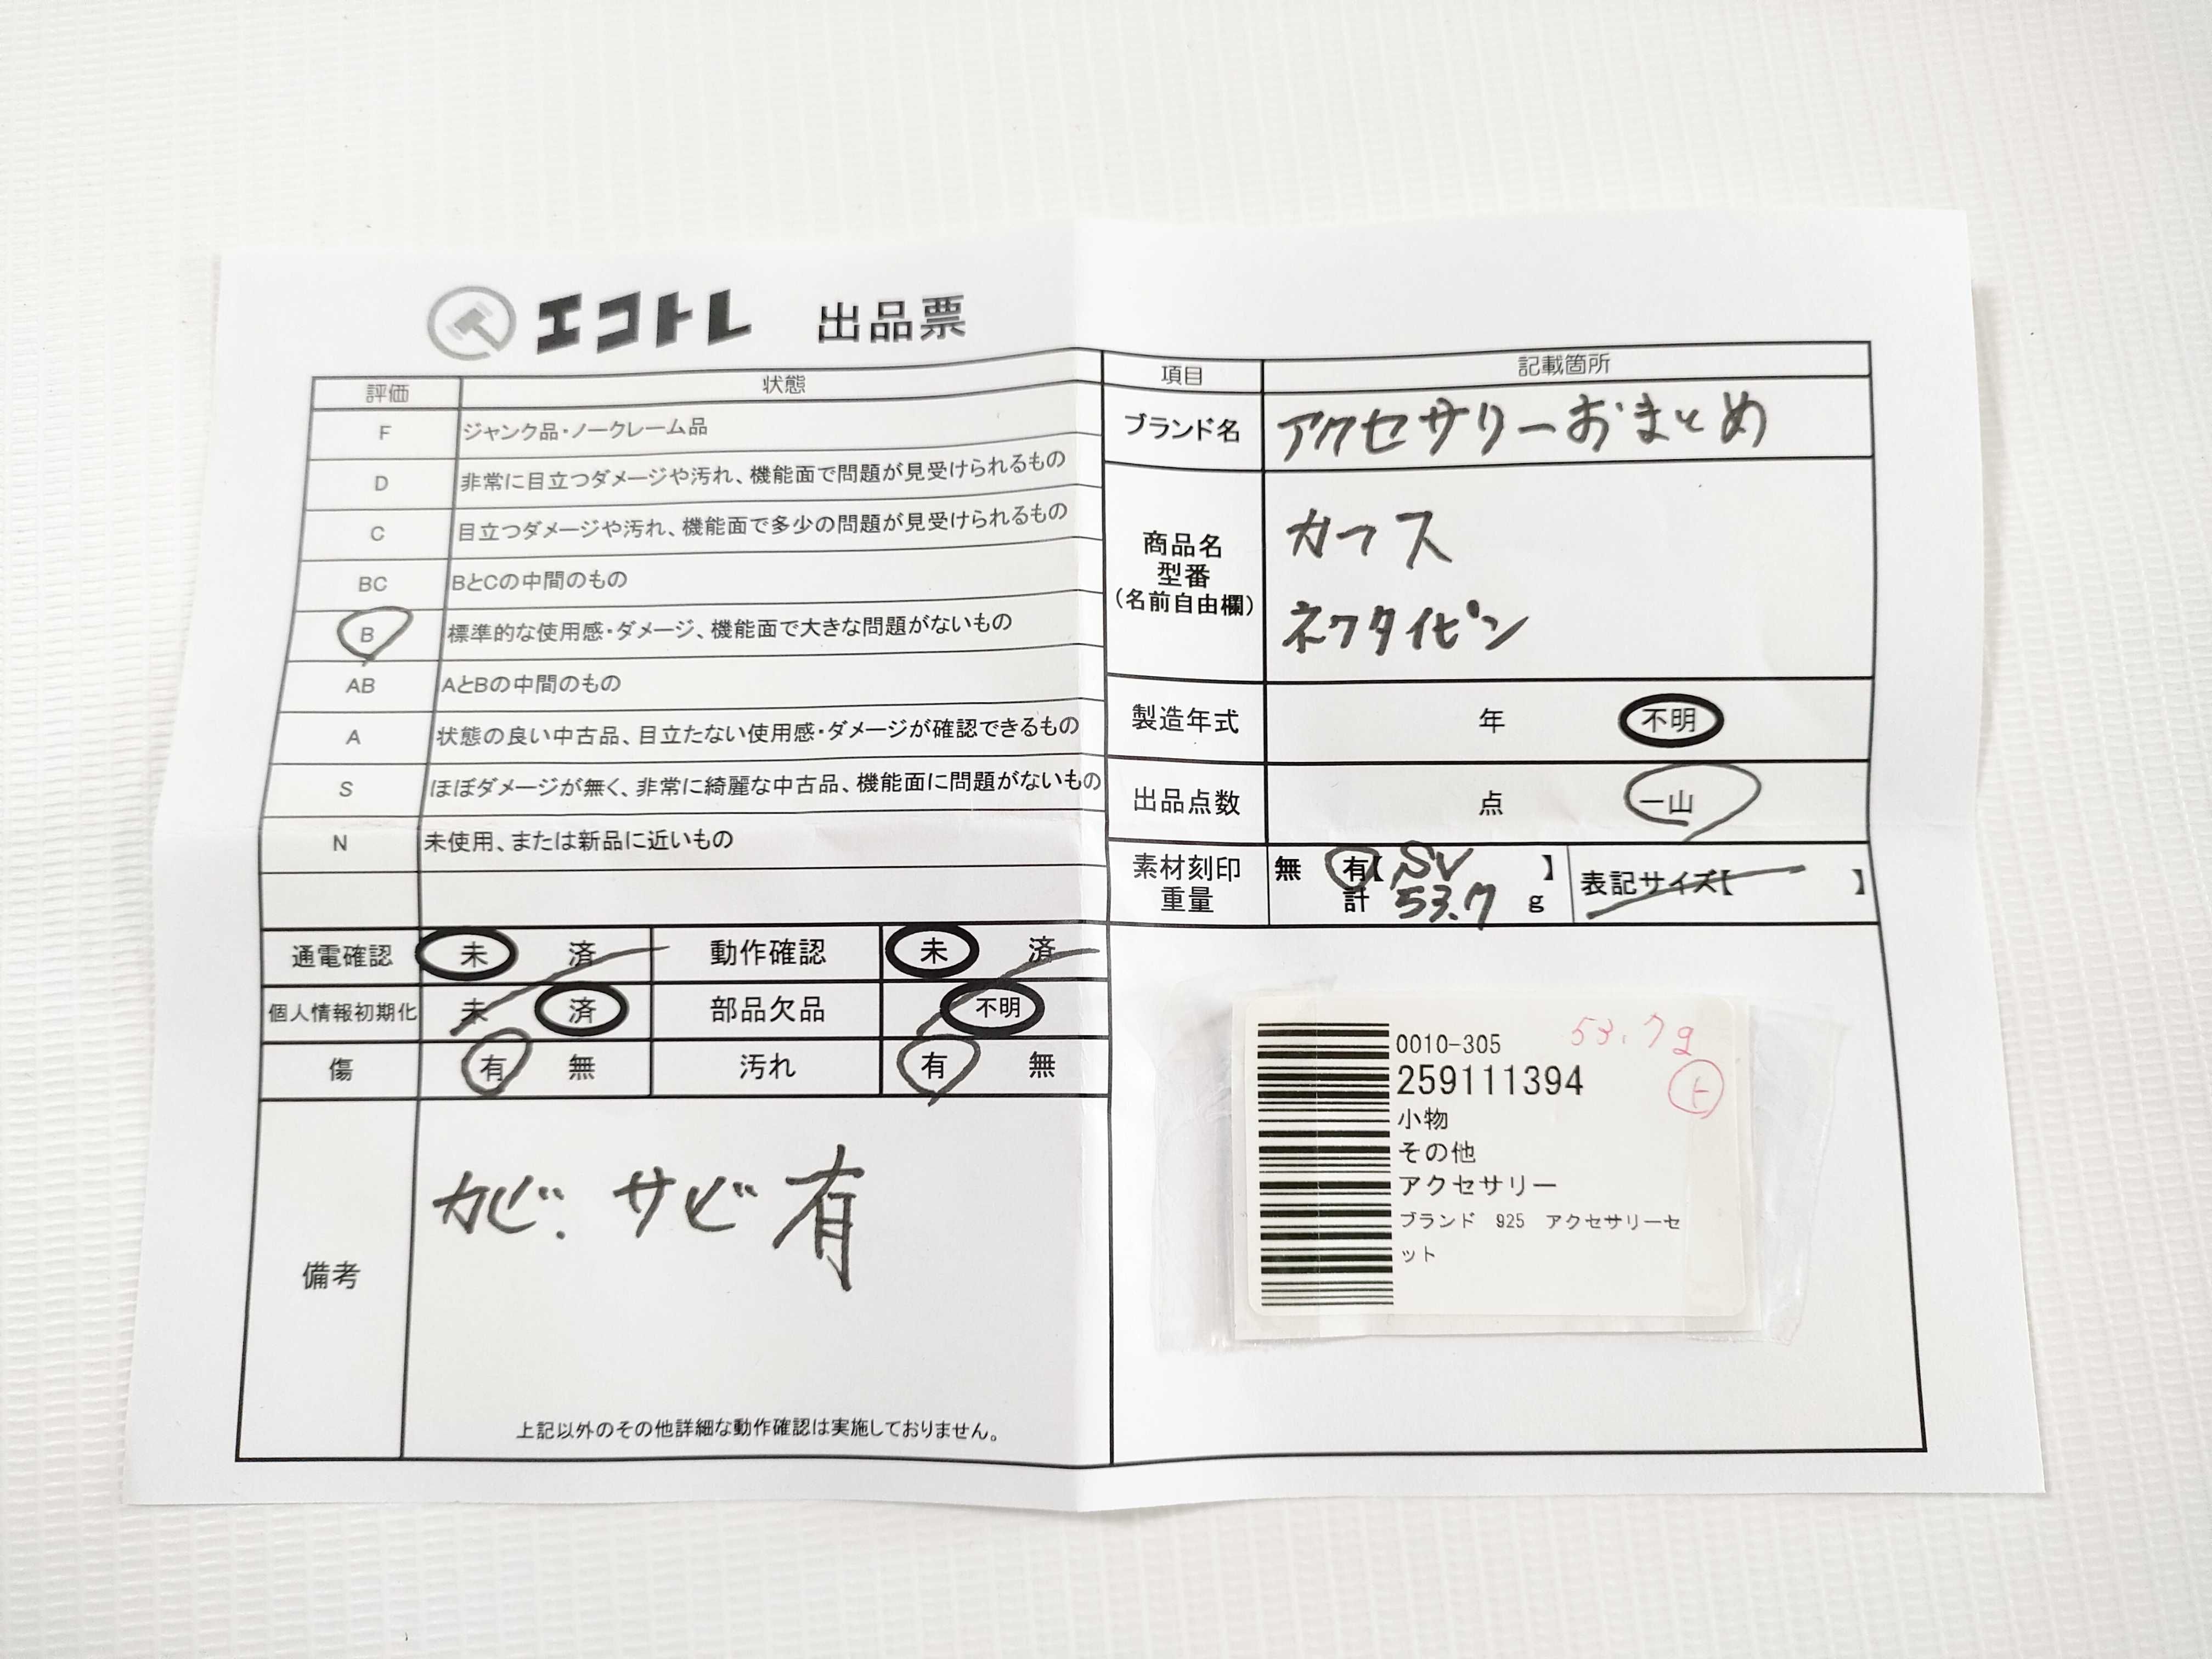 エコトレ 出品票
評価 状態
F ジャンク品・ノークレーム品
D 非常に目立つダメージや汚れ、機能面で問題が見受けられるもの
C 目立つダメージや汚れ、機能面で多少の問題が見受けられるもの
BC BとCの中間のもの
B 標準的な使用感・ダメージ、機能面で大きな問題がないもの
AB AとBの中間のもの
A 状態の良い中古品、目立たない使用感・ダメージが確認できるもの
S ほぼダメージが無く、非常に綺麗な中古品、機能面に問題がないもの
N 未使用、または新品に近いもの
通電確認 未 済 動作確認 未 済
個人情報初期化 未 済 部品欠品 不明
傷 有 無 汚れ 有 無
備考
カビ. サビ有
上記以外のその他詳細な動作確認は実施しておりません。
項目 記載箇所
ブランド名 アクセサリーおまとめ
商品名
型番
(名前自由欄)
カフス
ネクタイピン
製造年式 年 不明
出品点数 点 一山
素材刻印 無 有【 SV 】 表記サイズ【 】
重量 計 53.7 g
53.7g
ト
0010-305
259111394
小物
その他
アクセサリー
ブランド 925 アクセサリーセ
ット